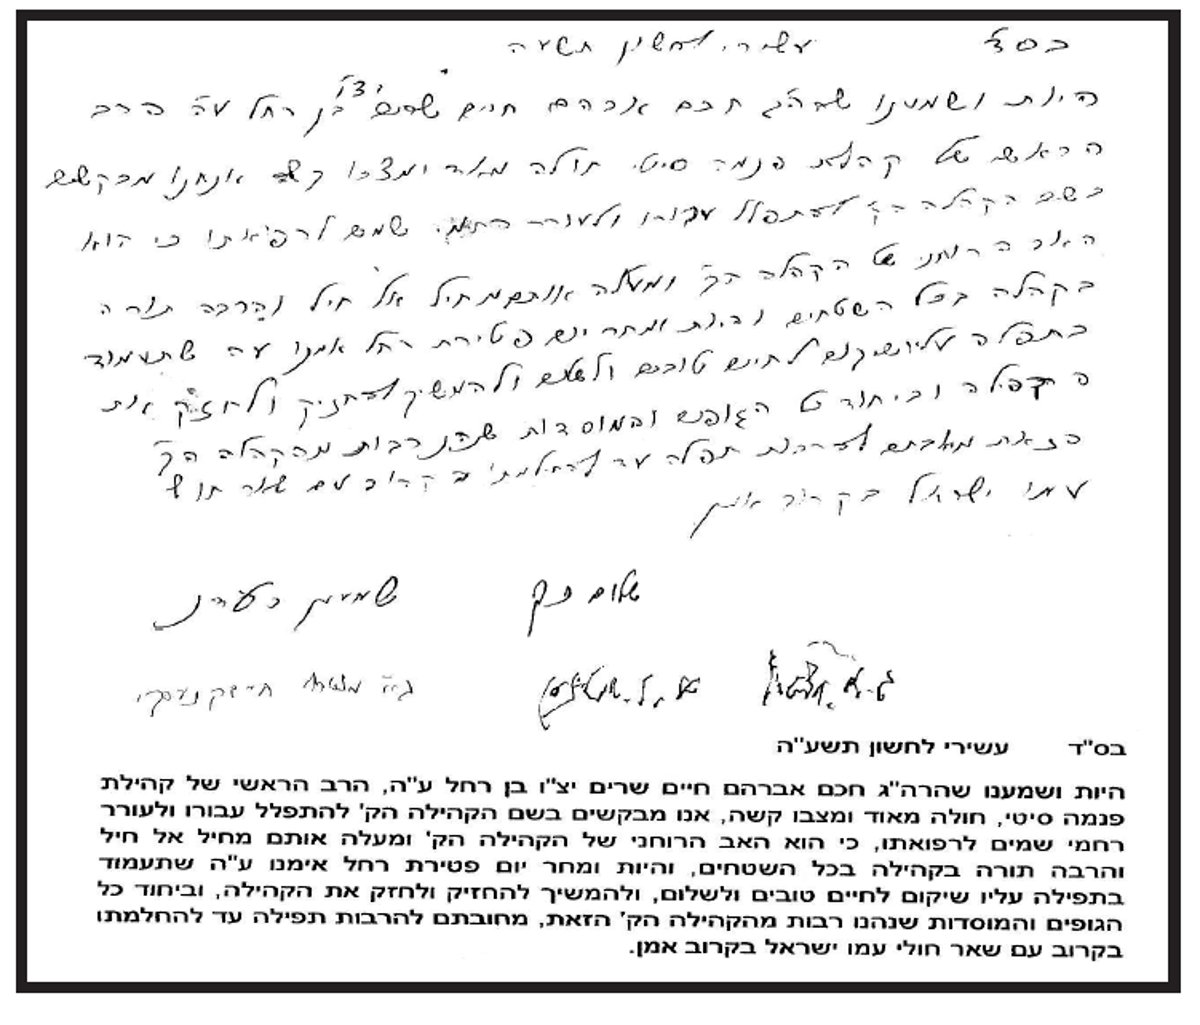 בסד עשירי לחשון תשעה
היות ושמענו שהרהג חכם אברהם חיים שרים יצו בן רחל עה הרב
הראשי של קהילת פנמה סיטי חולה מאוד ומצבו קשה אנחנו מבקשים
בשם הקהילה הק להתפלל עבורו ולעורר שמים לרפואתו כי הוא
האב הרוחני של הקהילה הק ומעלה אותם מחיל אל חיל והרבה תורה
בקהלה בכל השטחים והיות ומחר יום פטירת רחל אמנו עה שתעמוד
בתפלה עליו שיקום לחיים טובים ולשלום ולהמשיך להחזיק ולחזק את
הקהילה וביחוד כל הגופים והמוסדות שנהנו רבות מהקהלה הק
הזאת מחובתם להרבות תפלה עד להחלמתו בקרוב עם שאר חולי
עמו ישראל בקרוב אמן
שלום כהן שמעון בעדני
בס"ד עשירי לחשון תשע"ה
היות ושמענו שהרה"ג חכם אברהם חיים שרים יצ"ו בן רחל ע"ה, הרב הראשי של קהילת
פנמה סיטי, חולה מאוד ומצבו קשה, אנו מבקשים בשם הקהילה הק' להתפלל עבורו ולעורר
רחמי שמים לרפואתו, כי הוא האב הרוחני של הקהילה הק' ומעלה אותם מחיל אל חיל
והרבה תורה בקהילה בכל השטחים, והיות ומחר יום פטירת רחל אימנו ע"ה שתעמוד
בתפילה עליו שיקום לחיים טובים ולשלום, ולהמשיך להחזיק ולחזק את הקהילה, וביחוד כל
הגופים והמוסדות שנהנו רבות מהקהילה הק' הזאת, מחובתם להרבות תפילה עד להחלמתו
בקרוב עם שאר חולי עמו ישראל בקרוב אמן.